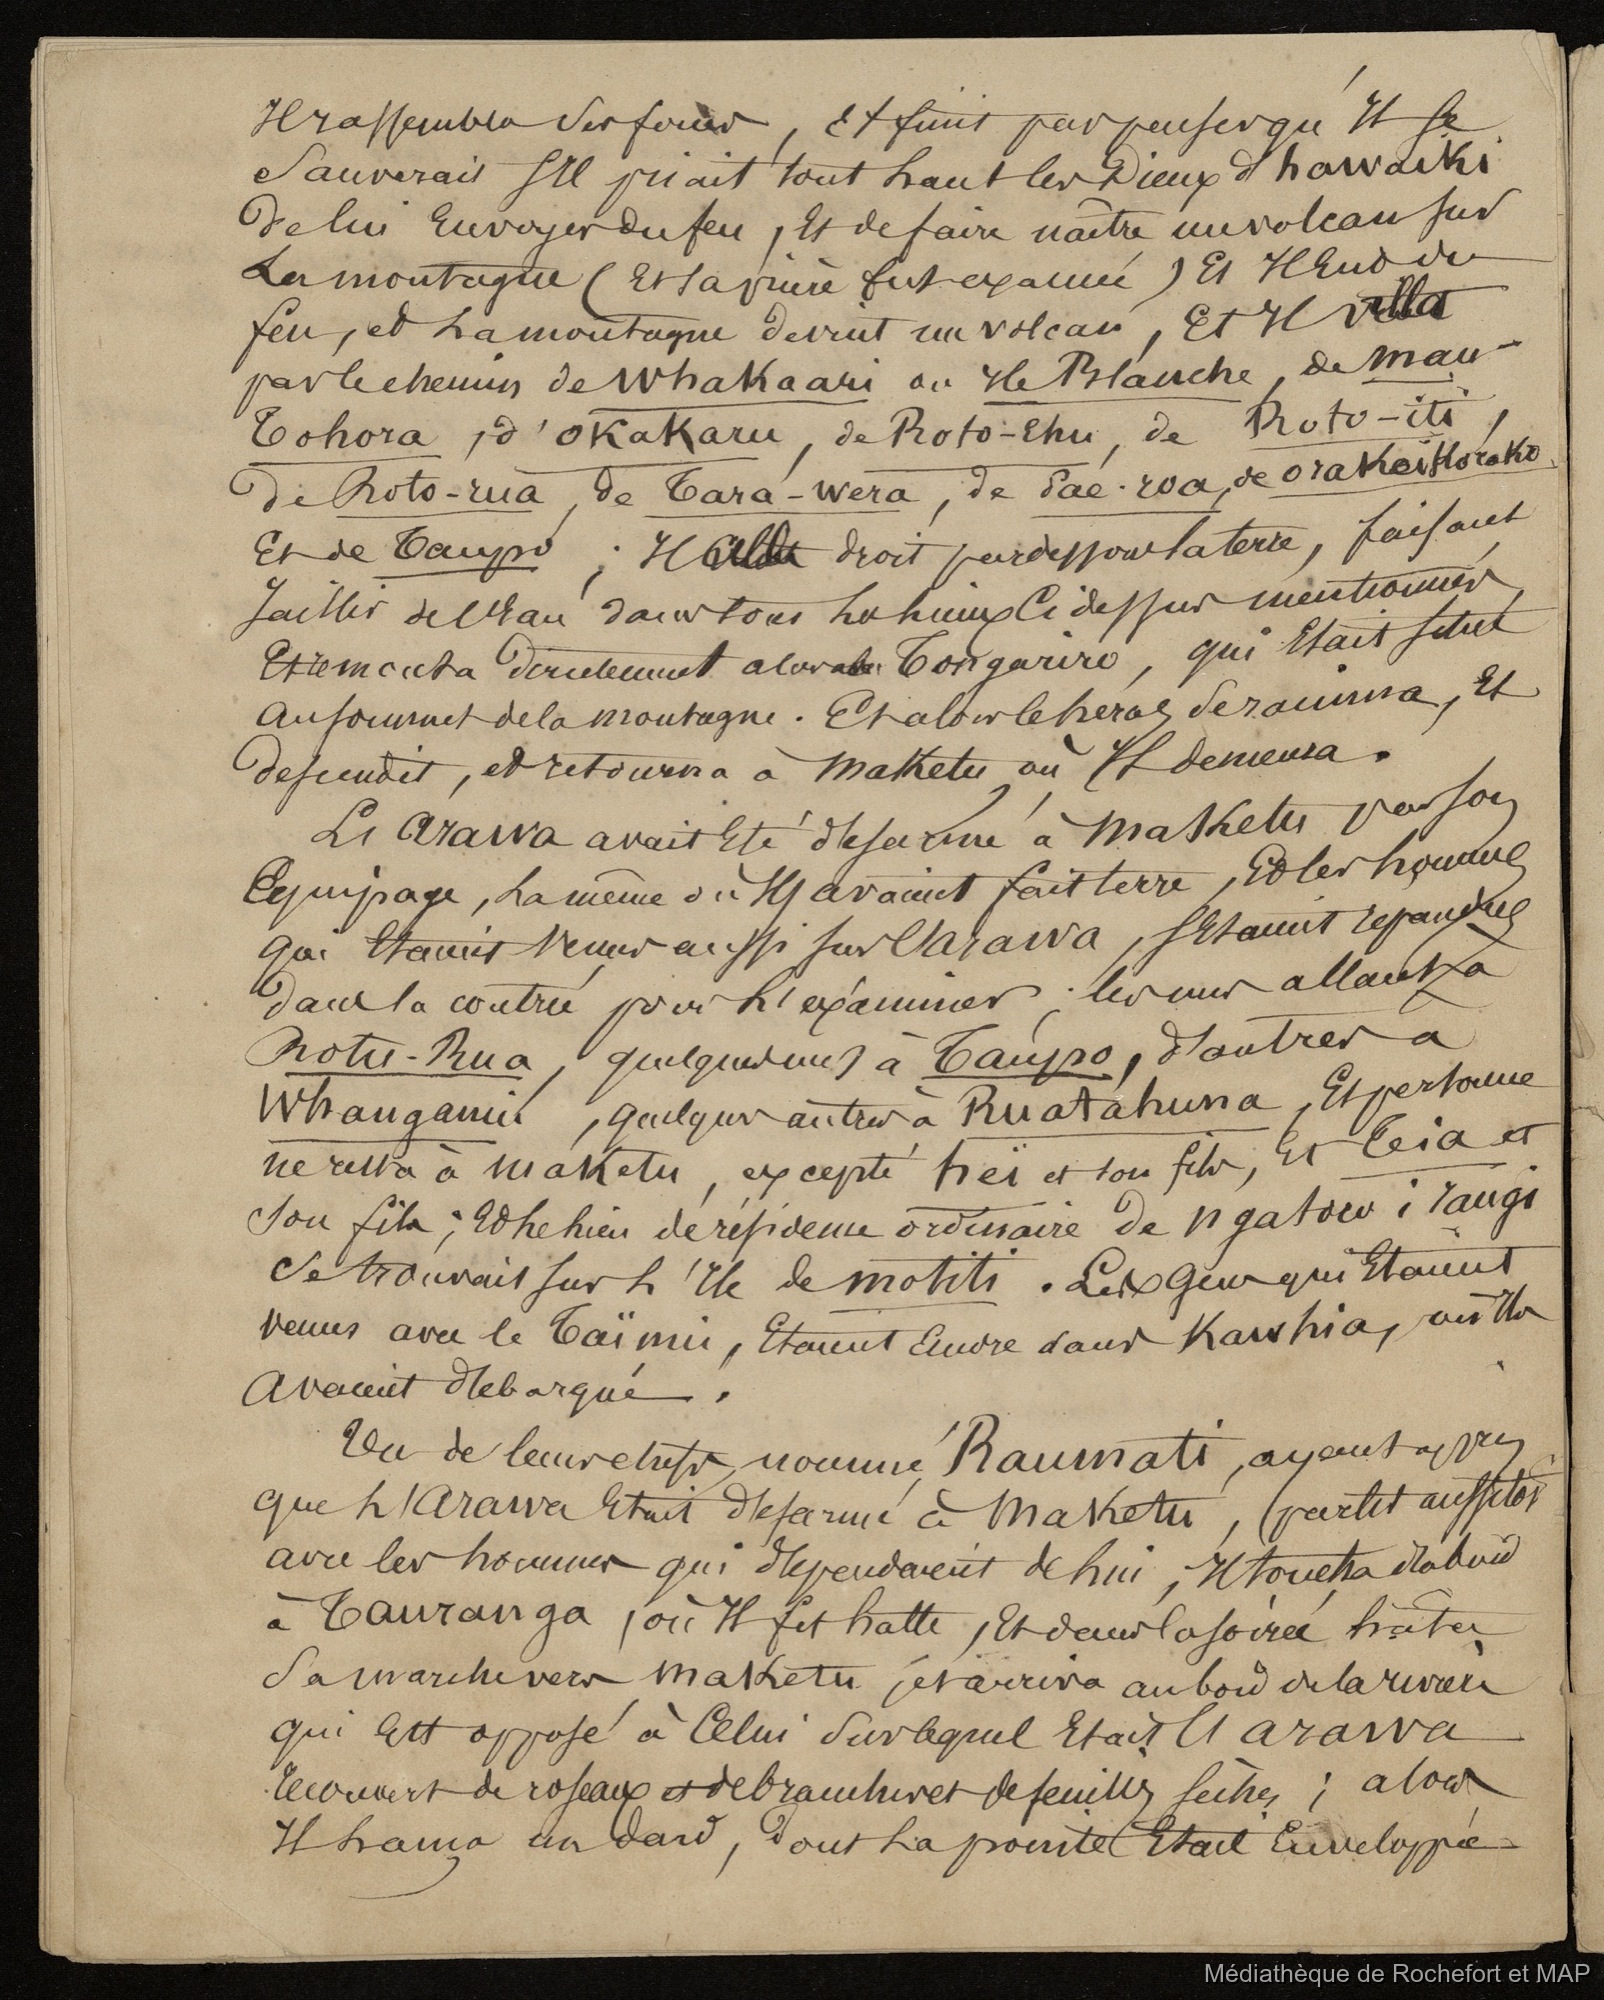 Il rassembla ses forces, Et finit par penser qu'Il se
Sauverait s'Il priait tout haut les Dieux d'hawaïki
De lui Envoyer du feu, Et de faire naître un volcan sur
La montagne (Et sa prière fut exaucée) Et Il Eut du
feu, et La montagne devint un volcan, Et Il alla
par le chemin de Whakaari ou Ile Blanche, de Mau-
Tohora, d'Okakaru, de Roto-Ehu, de Roto-iti,
De Roto-rua, de Tara-wera, de Pae-roa, de Orakeikorako
Et de Taupo ; Il alla droit par dessous la terre, faisant
Jaillir de l'Eau dans tous les lieux Ci dessus mentionnés,
Et remonta directement alors au Tongariro, qui Etait situé
au sommet de la montagne. Et alors le héros se ranima, Et
descendit, et retourna à Maketu où Il demeura.
L'Arawa avait Eté désarmé à Maketu par son
Equipage, La même où Ils avaient fait terre, Et les hommes
qui Etaient Venus aussi sur l'Arawa, s'Etaient répandus
Dans la contrée pour l'examiner ; les uns allant à
Rotu-Rua, quelques uns à Taupo, d'autres à
Whanganui, quelques autres à Ruatahuna, Et personne
ne resta à Maketu, excepté heï et son fils, Et Teia et
Son fils ; Et le lieu de résidence ordinaire de Ngatoro i rangi
Se trouvait sur l'Ile de motiti. Les Gens qui Etaient
venus avec le Taïnui, Etaient Encore dans Kawhia, où Ils
Avaient débarqué.
Un de leurs chefs, nommé Raumati, ayant appris
que l'Arawa Etait désarmé à Maketu, partit aussitôt
avec les hommes qui dépendaient de lui ; Il toucha d'abord
à Tauranga, où Il fit halte, Et dans la soirée hâta
Sa marche vers Maketu, et arriva au bord de la rivière
qui Est opposé à Celui Sur lequel Etait l'Arawa
Recouvert de roseaux et de branches et de feuilles sèches ; alors
Il lança un dard, dont La pointe Etait Enveloppée
Médiathèque de Rochefort et MAP